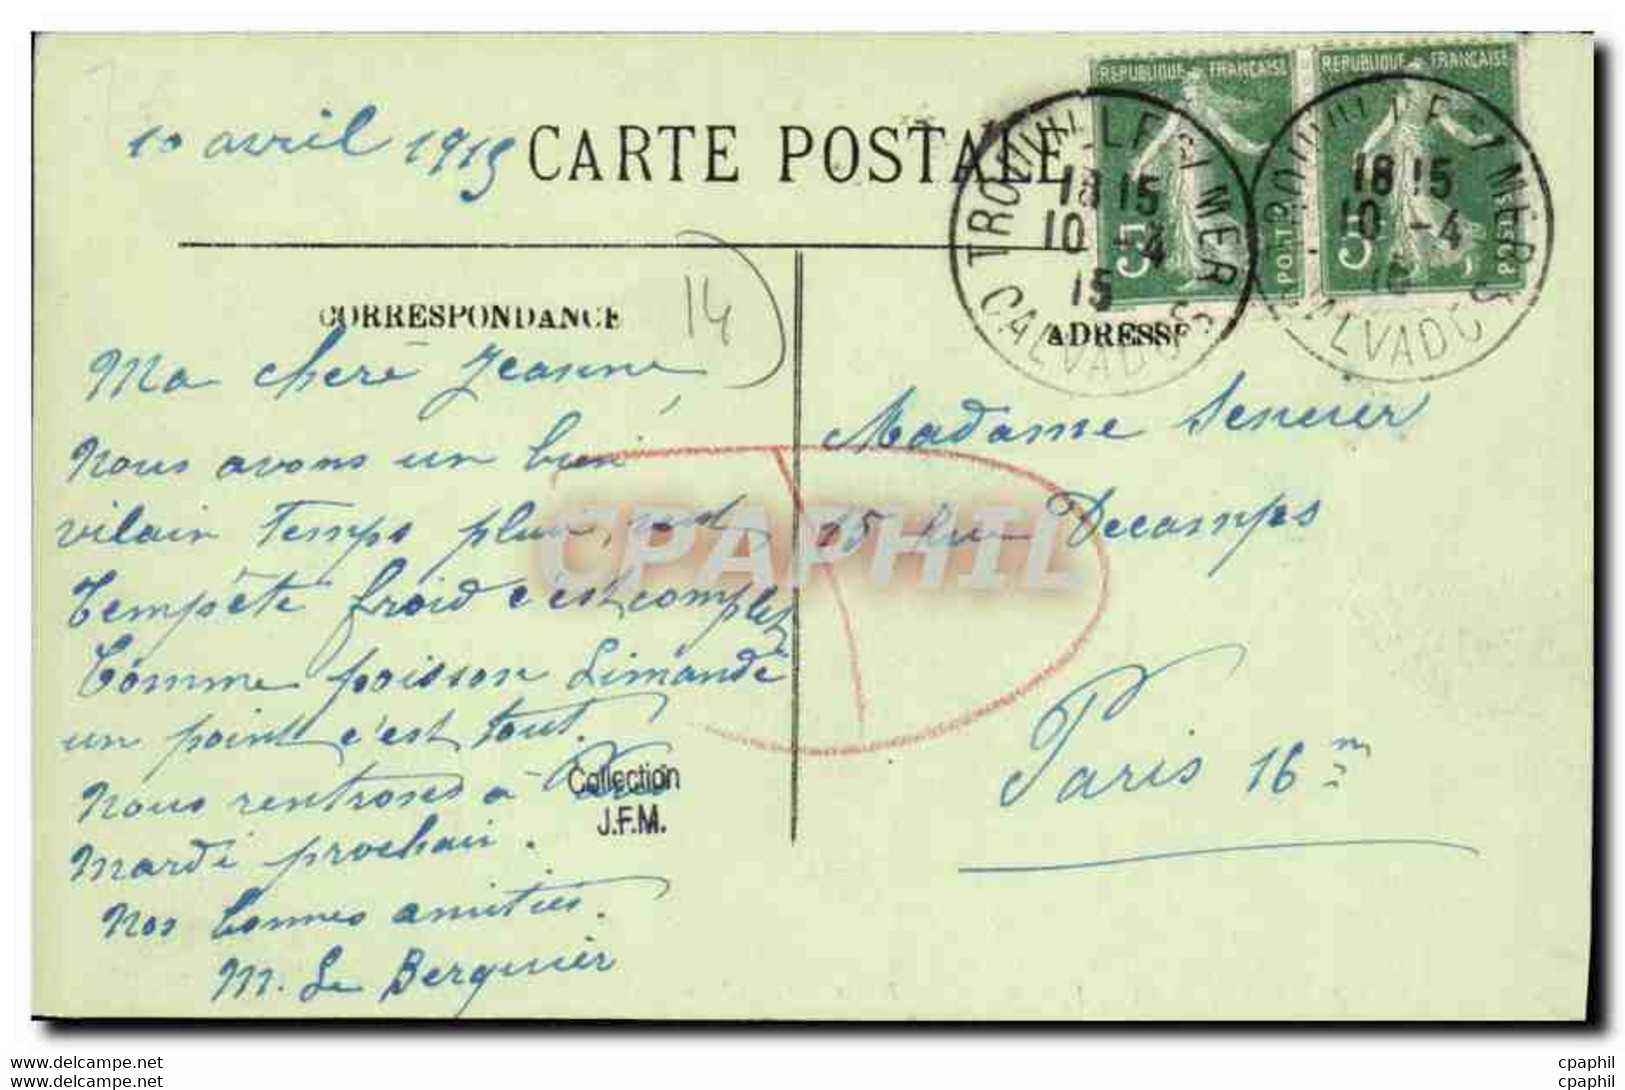 10 avril 1915
CARTE POSTALE
REPUBLIQUE FRANÇAISE
REPUBLIQUE FRANÇAISE
5
5
POSTES
POSTES
TROUVILLE S/ MER
18 15
10 -4
15
CALVADOS
TROUVILLE S/ MER
18 15
10 -4
15
CALVADOS
CORRESPONDANCE
14
ADRESSE
Ma chere Jeanne
Nous avons un bien
vilain Temps pluie, vent,
Tempête froid c'est complet
Comme poisson Limande
un point c'est tout.
Nous rentrons à
Mardi prochain.
Nos bonnes amitiés.
M. Le Berquier
Madame Senener
15 Rue Decamps
Paris 16m
CPAPHIL
Collection
J.F.M.
cpaphil.com
cpaphil.com
cpaphil
cpaphil